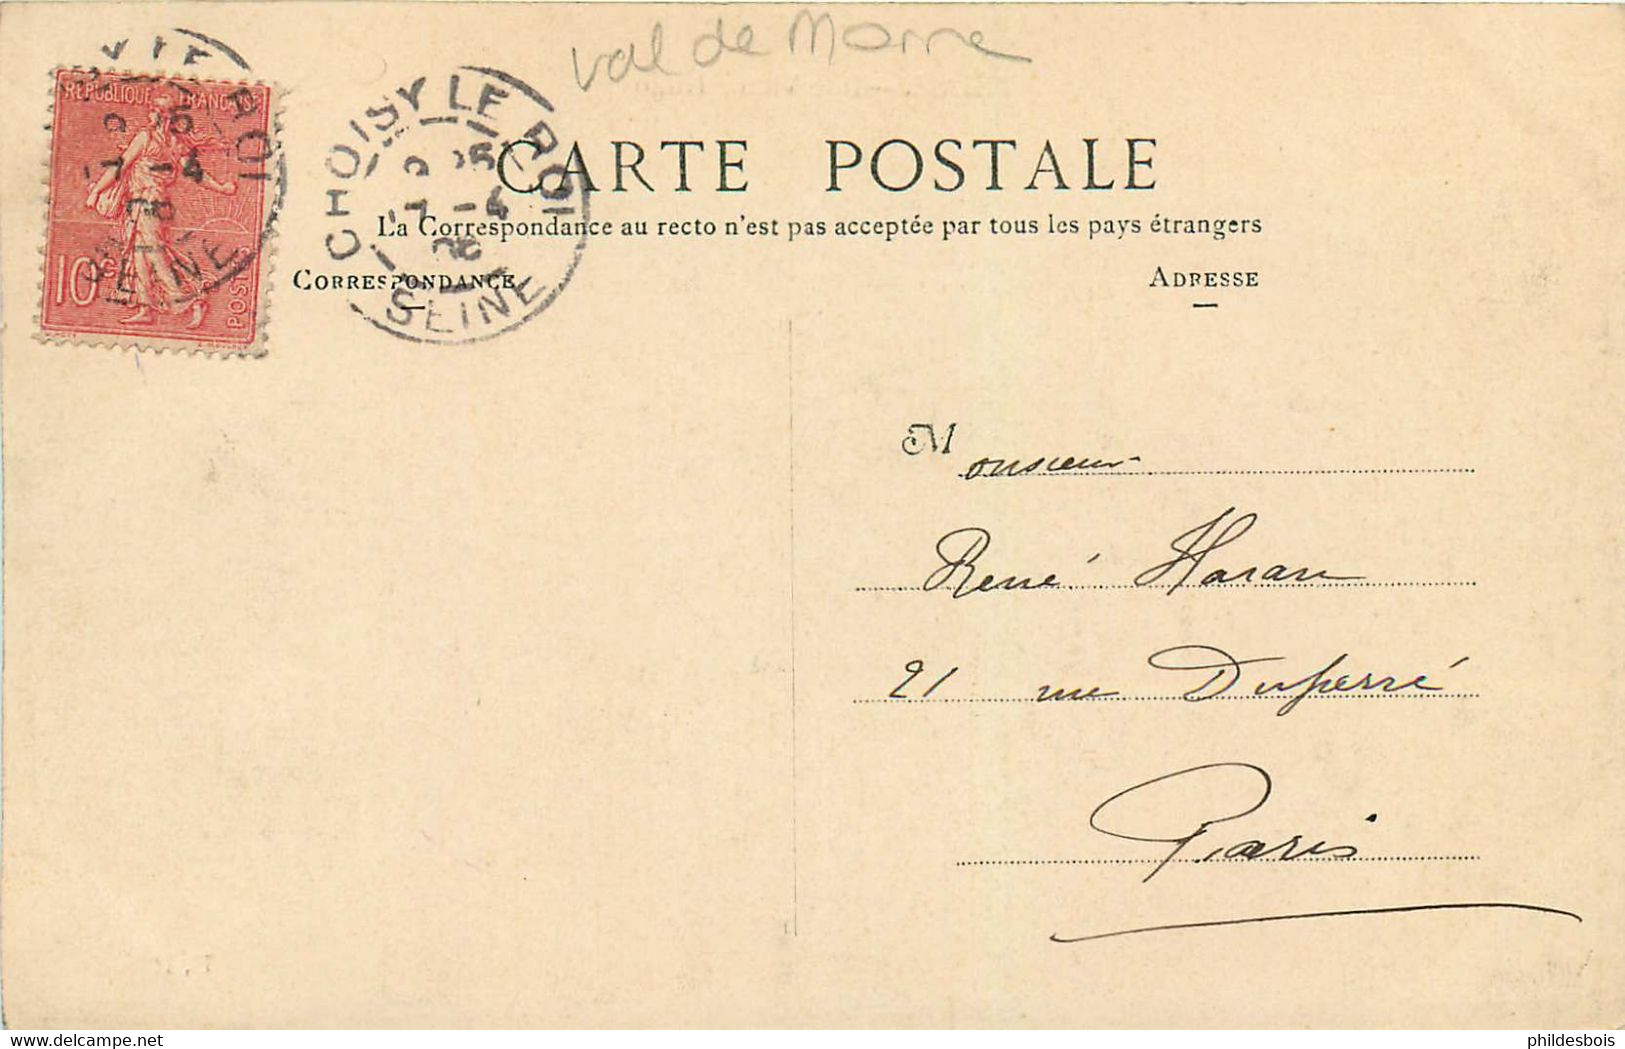 val de Marne
RÉPUBLIQUE FRANÇAISE
10c
POSTES
CHOISY LE ROI
7 - 4
06
SEINE
CARTE POSTALE
La Correspondance au recto n'est pas acceptée par tous les pays étrangers
CORRESPONDANCE
ADRESSE
Monsieur
René Haran
21 rue Duperré
Paris
phildesbois